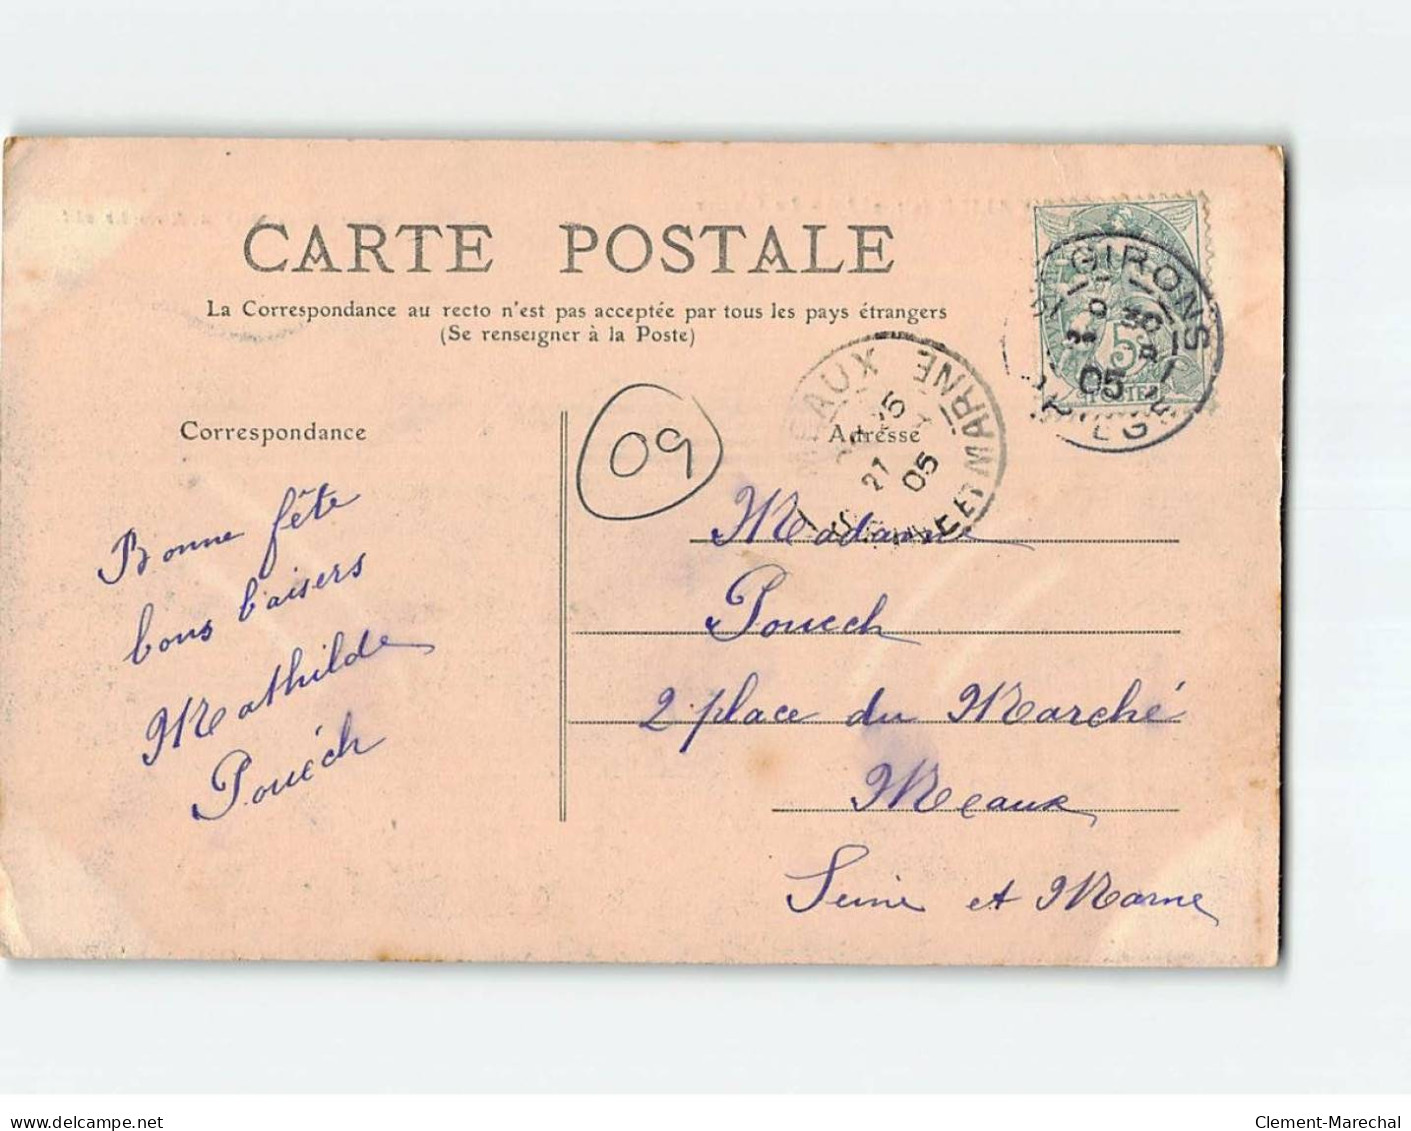 CARTE POSTALE
La Correspondance au recto n'est pas acceptée par tous les pays étrangers
(Se renseigner à la Poste)
GIRONS
05
5
MEAUX
SEINE ET MARNE
05
09
Correspondance
Adresse
Bonne fête
bons baisers
Mathilde
Pouéch
Madame
Pouech
2 place du Marché
Meaux
Seine et Marne
www.delcampe.net
Clement-Marechal